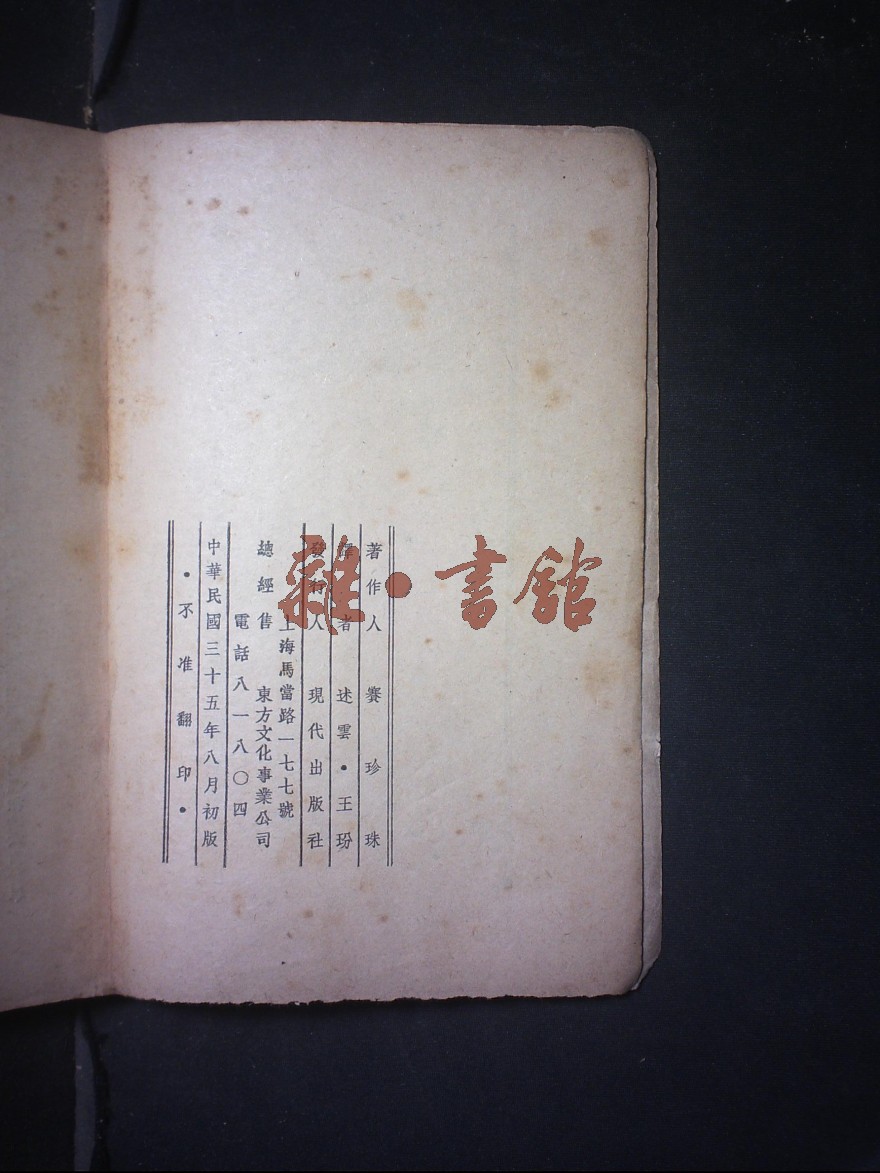 著作人 賽珍珠
譯者 述雲・王玢
發行人 現代出版社
上海馬當路一七七號
總經售 東方文化事業公司
電話八一八〇四
中華民國三十五年八月初版
・不准翻印・
雜・書館